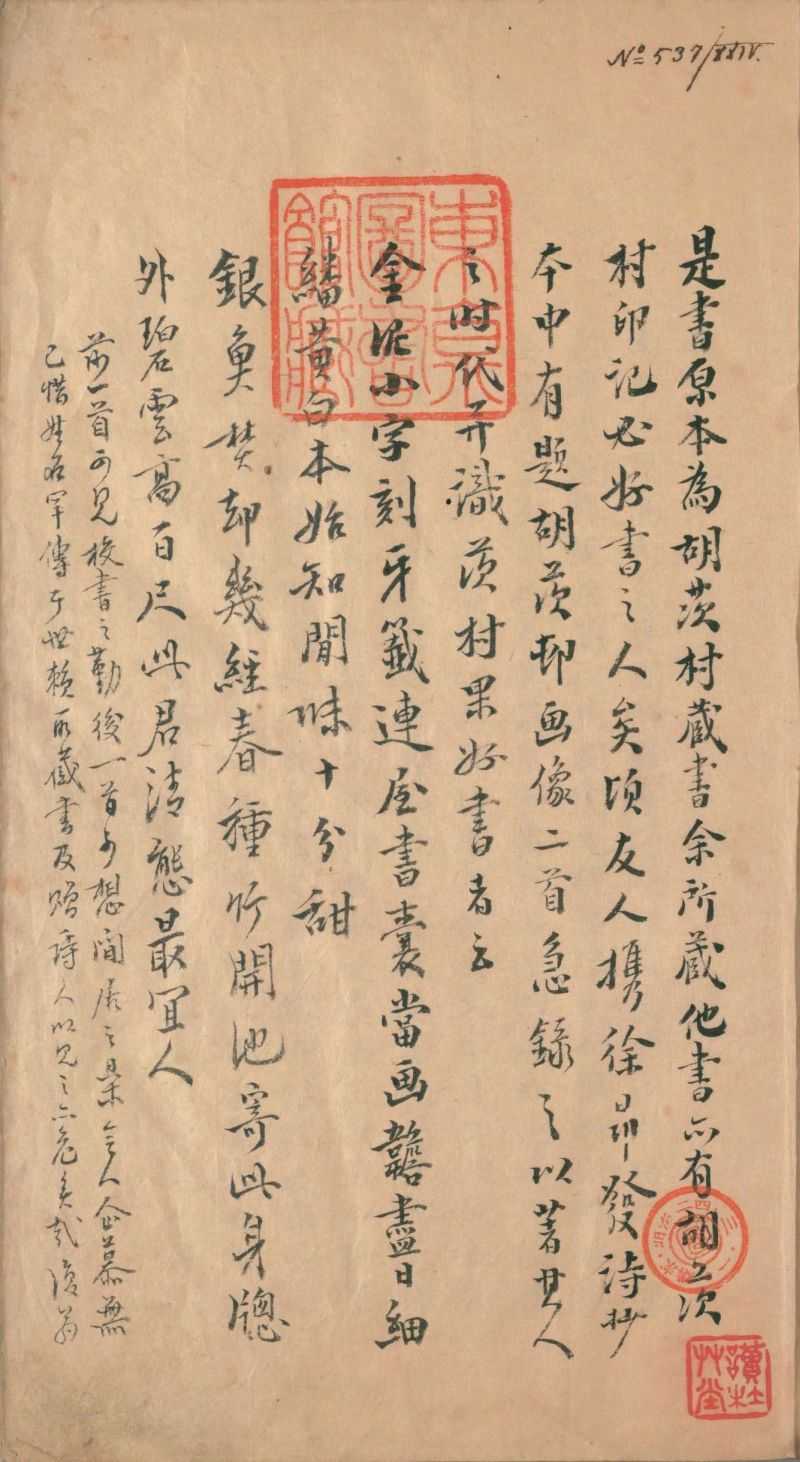 № 537/XXIV.
是書原本為胡茨村藏書余所藏他書亦有胡茨
村印記必好書之人矣頃友人携徐昂發詩抄
本中有題胡茨邨画像二首急録之以著其人
之時代并識茨村果好書者云
金泥小字刻牙籤連屋書囊當画簷盡日細
繙黃白本始知閒味十分甜
銀魚焚却幾經春種竹開池寄此身牕
外碧雲高百尺此君清態最宜人
前一首可見校書之勤後一首可想閒居之樂令人企慕無
已惜姓名罕傳于世賴所藏書及贈詩人以見之亦危矣哉復翁
東京圖書館藏
讀杜艸堂